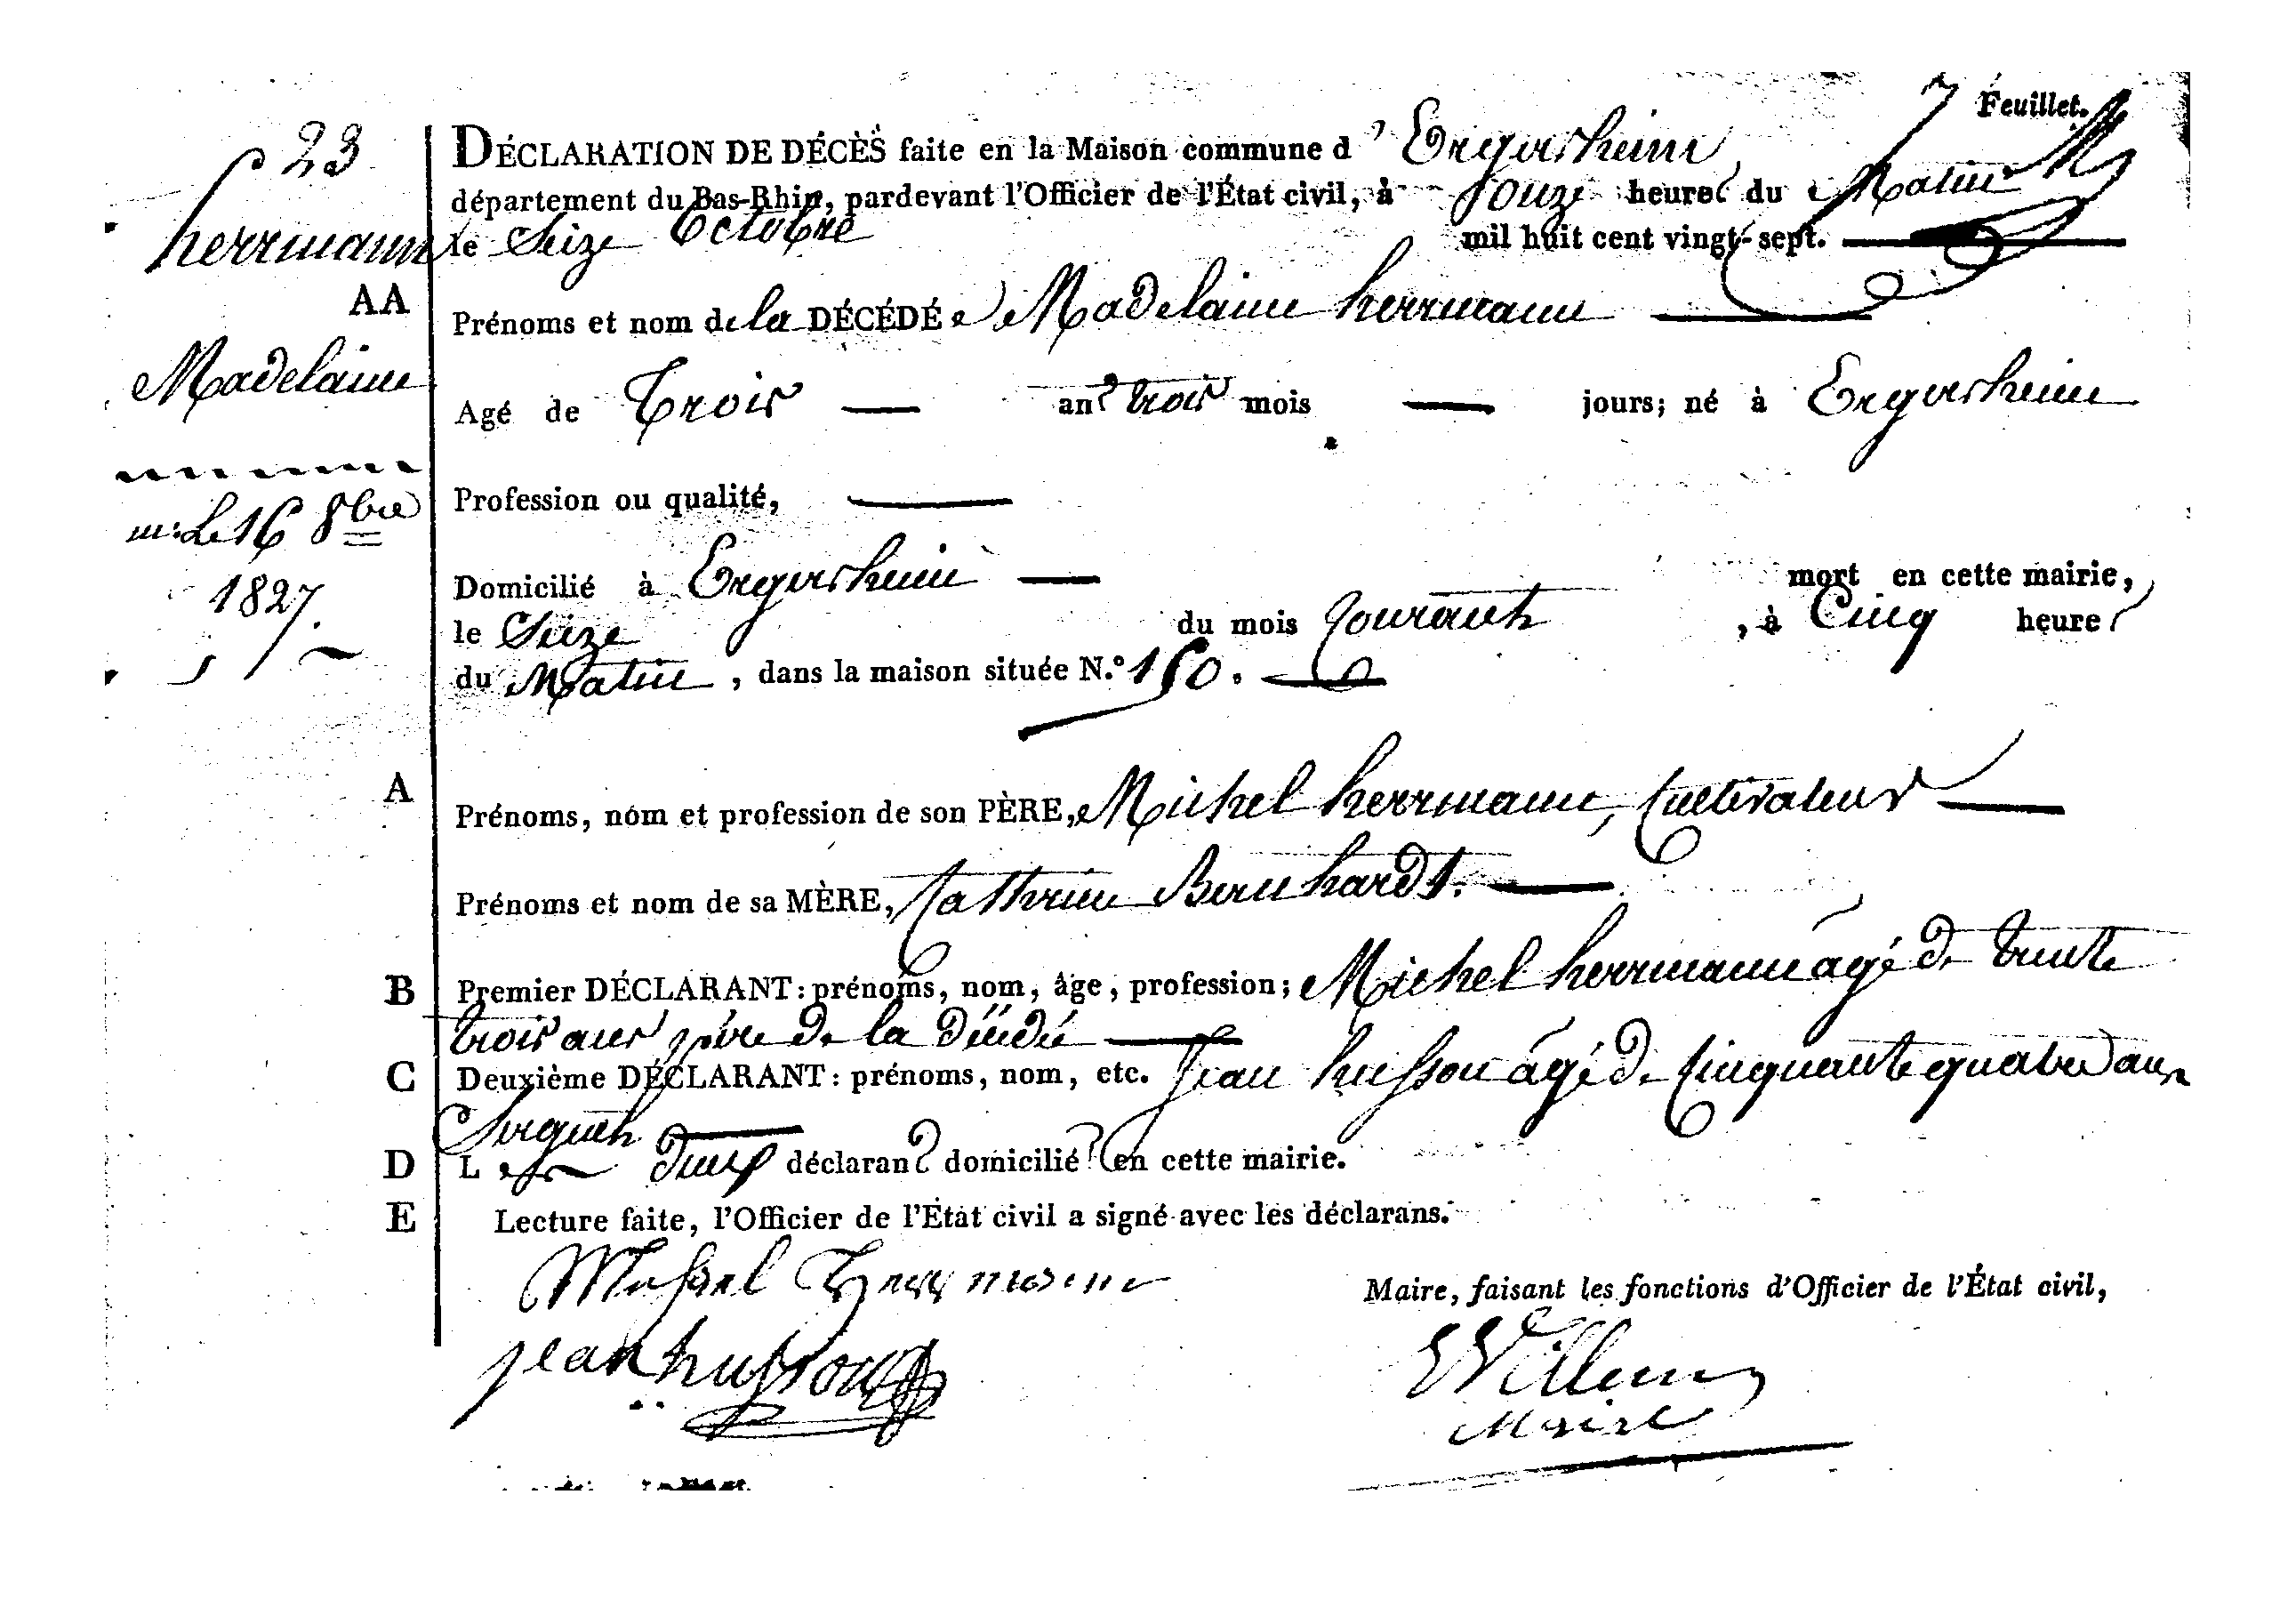 7 Feuillet.
23
DÉCLARATION DE DÉCÈS faite en la Maison commune d' Ergersheim
département du Bas-Rhin, pardevant l'Officier de l'État civil, à onze heures du Matin
herrmann
le Seize Octobre mil huit cent vingt-sept.
AA
Prénoms et nom de la DÉCÉDÉe Madelaine herrmann
Madelaine
Agé de Trois ans trois mois jours; né à Ergersheim
m: Le 16 8bre
1827.
Profession ou qualité,
Domicilié à Ergersheim mort en cette mairie,
le Seize du mois Courant, à Cinq heures
du Matin, dans la maison située N.° 150.
A
Prénoms, nom et profession de son PÈRE, Michel herrmann, Cultivateur
Prénoms et nom de sa MÈRE, Catherine Bernhardt.
B Premier DÉCLARANT: prénoms, nom, âge, profession; Michel herrmann agé de trente
trois ans père de la décédée
C Deuxième DÉCLARANT: prénoms, nom, etc. Jean husson agé de Cinquante quatre ans
Sergent
D Les deux déclarans domiciliés en cette mairie.
E Lecture faite, l'Officier de l'État civil a signé avec les déclarans.
Michael Herrmann
Maire, faisant les fonctions d'Officier de l'État civil,
jean husson
Willem
Maire